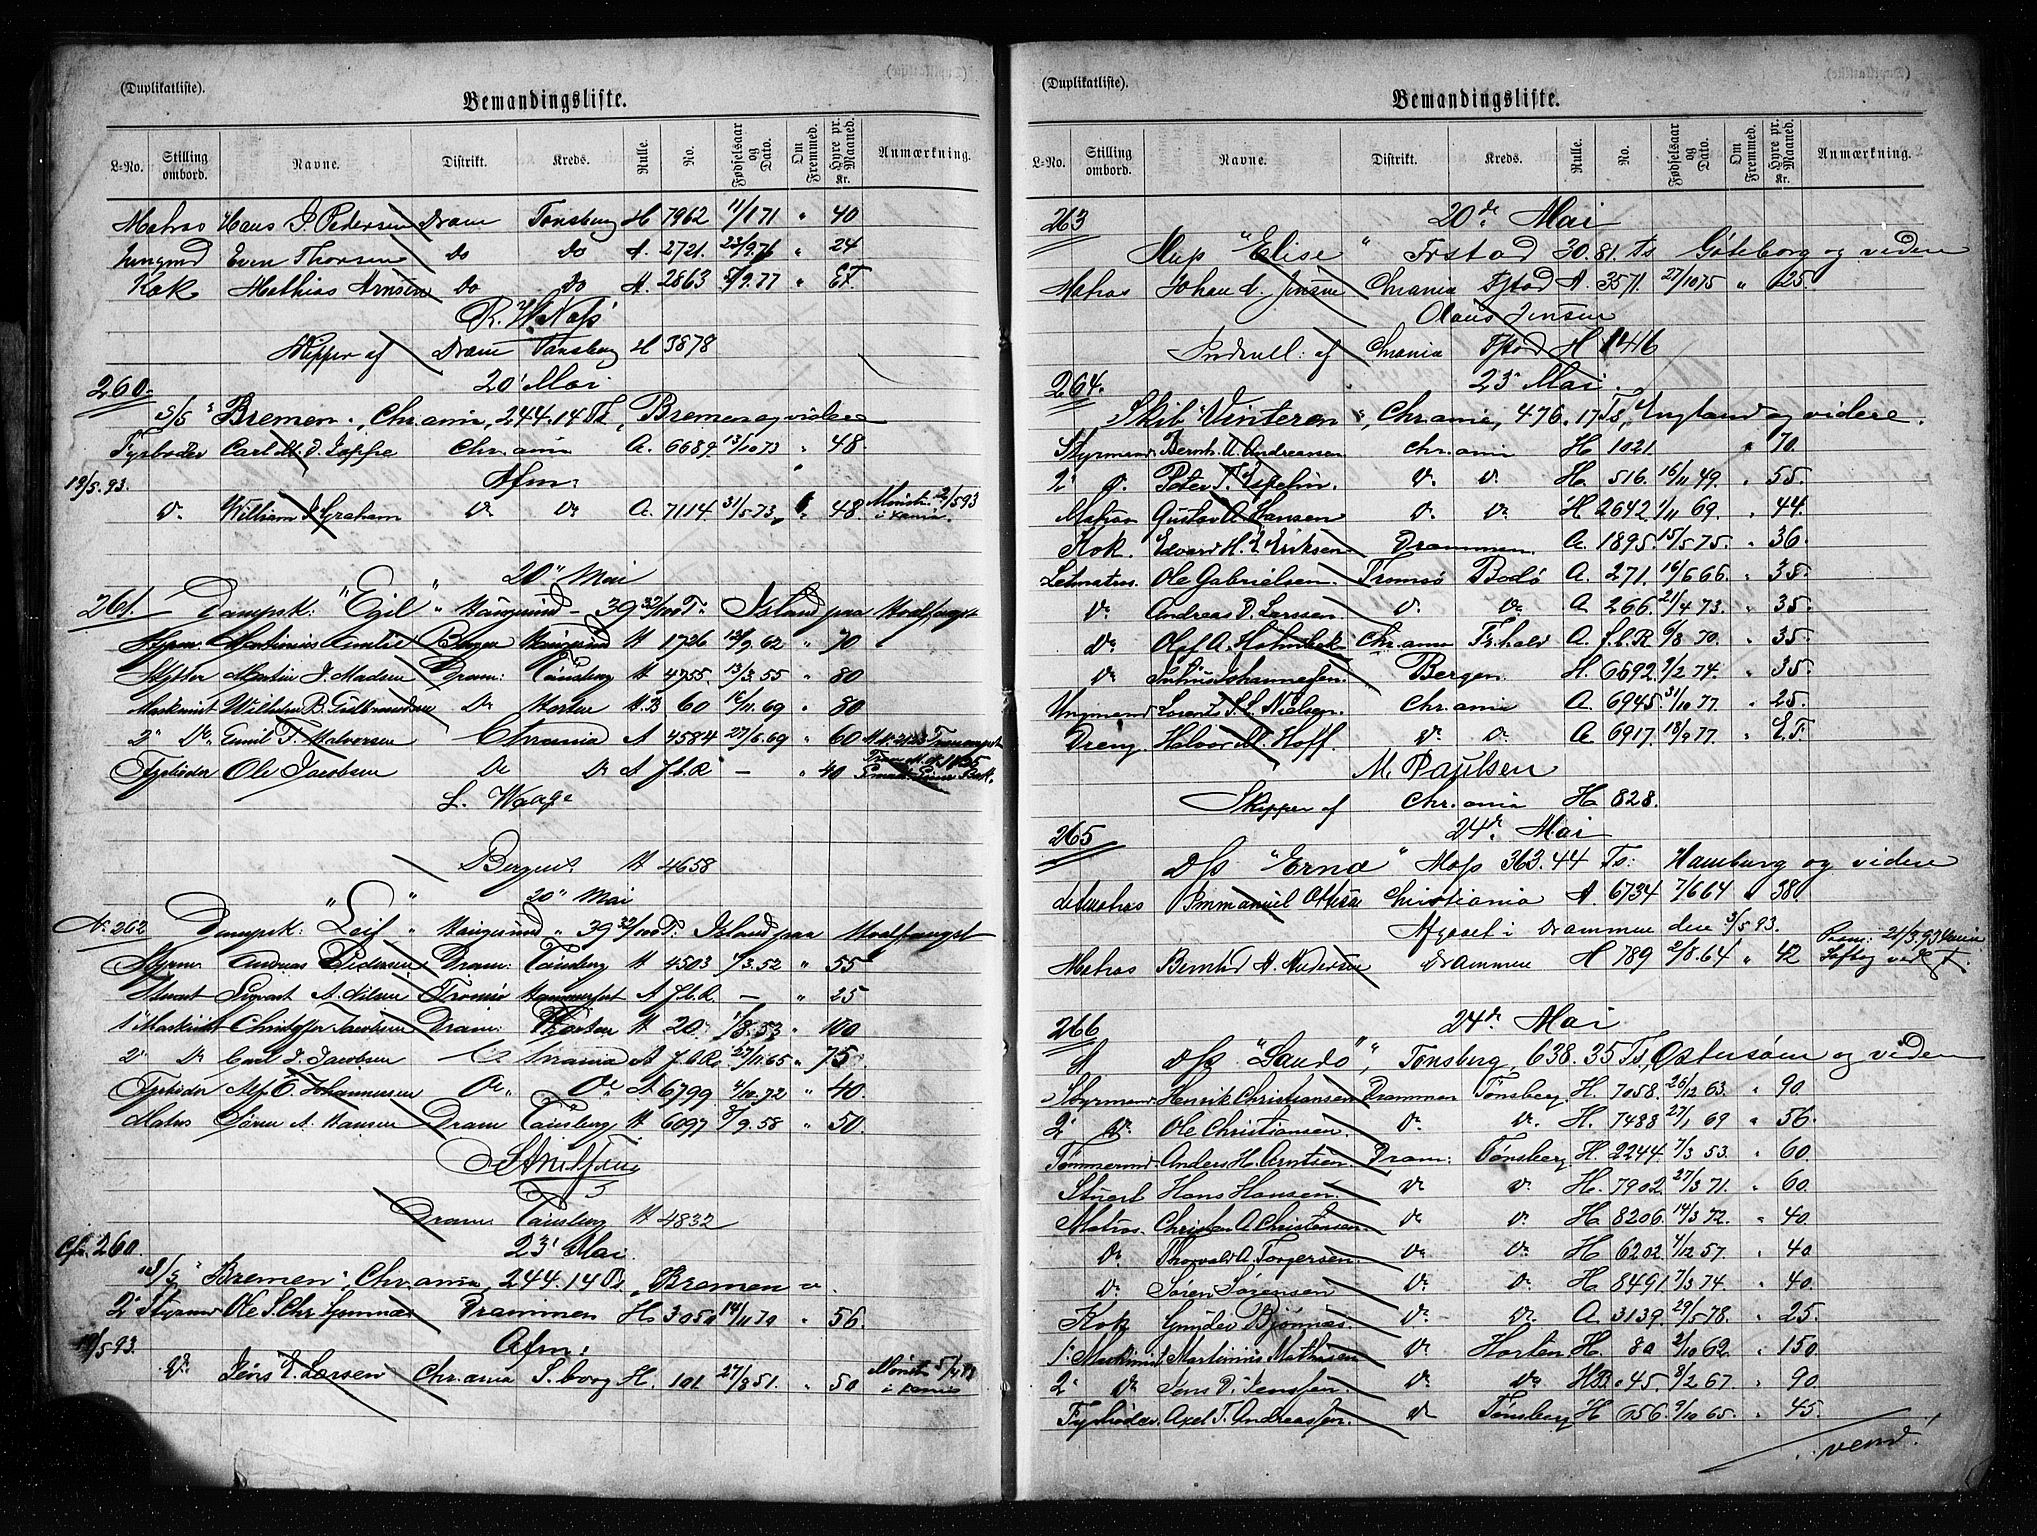 (Duplikatliste).
Bemandingsliste.
L-No. Stilling ombord. Navne. Distrikt. Kreds. Rulle. No. Fødselsaar og Dato. Om Fremmed. Hyre pr. Maaned. Kr. Anmærkning.
Matros Hans J. Pedersen Dram Tønsberg H 7962 1/1 71 " 40
Jungmd Even Thorsen Do Do A. 2721. 23/9.76 " 24
Kok Mathias Arnsen Do Do A. 2863 5/9.77 " EF.
Skipper af Dram Tønsberg H 3878
260. 20' Mai
S/S "Bremen", Chr.ania, 244.14 Ts, Bremen og videre
Fyrbøder Carl M. J. Jappe Chr.ania A. 6689 13/10 73 " 48
19/5.93. Afm.
Do William J. Graham Do Do A. 7114 31/5 73 48
20" Mai
261. Dampsk: "Egil" Haugesund - 39 32/100 T: Island paa Hvalfangst
Styrm Bergen Haugesund H 1726 12/9 62 " 70
Skytter Martin J. Madsen Dram: Tønsberg H 4755. 13/3.55 " 80
Maskinist Wilhelm B. Gulbrandsen Do Horten H.B 60 16/11.69 " 80
2" Do Emil F. Halvorsen Chrania A 4584 27/6.69 " 60
Fyrbøder Ole Jacobsen Do Do A f.l.R - " 40
L. Waage
Bergens H 4658
20" Mai
No 262 Dampsk: "Leif" Haugesund " 39 32/100 T: Island paa Hvalfangst
Styrm Andreas Pedersen Dram: Tønsberg H 4503 1/3.52 " 55
Stuert Sigvart A. Nilsen Tromsø Hammerfest A f.l.R. - " 25
1" Maskinist Christoffer Jacobsen Dram: Horten H 20 1/8.53 " 100
2" Do Carl J. Jacobsen Chrania A f.l.R. 27/11.65 " 75
Fyrbøder Alf E. Johannesen Do Do A 6799 4/12.72 " 40
Matros Søren A. Hansen Dram Tønsberg H 6097 5/9.58 " 50
Dram Tønsberg H 4832
Cfr. 260. 23' Mai
S/S "Bremen" Chr.ania, 244.14 Ts, Bremen
2' Styrmd Ole S. Chr. Drammen H. 3050 14/11 70 " 56.
19/5.93. Afm:
Do Jens E. Larsen Chr.ania S.borg H. 101. 27/8 51. " 50
(Duplikatliste).
Bemandingsliste.
L-No. Stilling ombord. Navne. Distrikt. Kreds. Rulle. No. Fødselsaar og Dato. Om Fremmed. Hyre pr. Maaned. Kr. Anmærkning.
263 20de Mai
"Elise" Frstad 30.81. Ts Gøteborg og videre
Matros Johan A. Jensen Chrania Fstad A. 3571. 27/10 75 " 25.
Olaus Jensen
Indrull: af Chrania Fstad H 1246
264. 23' Mai.
Skib "Vinteren", Chr.ania, 476.17 Ts, England og videre.
Styrmand Bernh. A. Andreasen Chr.ania H. 1021. " 70.
2' do. Peter T. Do Do H. 516. 16/11 49. " 55.
Matros Gustav A. Hansen Do Do H 2642 1/11 69. " 44.
Kok. Edvard H. E. Eriksen Drammen. A. 1895. 15/5 75. " 36.
Letmatros. Ole Gabrielsen. Tromsø Bodø A. 271. 16/6 66. " 35.
Do Andreas D. Larssen Do Do A 266. 21/4 73. " 35.
Do Olaf A. Holmbek Chr.ania Fr.hald A. f.l.R 6/8 70. " 35.
Do Johannesen. Bergen H. 6692 9/2 74. " 35.
Ungmand Lorents S. L. Nielsen. Chr.ania A. 6945. 31/10 77. " 25.
Dreng. Halvor M. Hoff. Do Do A. 6917. 18/9 77. " E.F.
M. Paulsen
Skipper af Chr.ania H 828.
265 24de Mai
D/S "Erna" Moss 363.44 Ts: Hamburg og videre
Letmatros Emmanuel Ottesen Christiania A 6734 7/6 64 " 38
Afgaaet i Drammen den 3/5 93.
Matros Bernhd A. Andersen Drammen H 789 2/8.64 " 42
266 24de Mai
D/S "Sando", Tønsberg, 638.35 Ts, Østersøen og videre
Styrmand Henrik Christiansen Drammen Tønsberg H. 7058. 26/12 63. " 90.
2' Do. Ole Christiansen. Do Do. H. 7488 27/1 69 " 56.
Tømmermd Anders H. Arntsen. Dram: Tønsberg H. 2244. 7/3 53. " 60
Stuert Hans Hansen. Do Do. H. 7902. 27/3 71. " 60.
Matros. Christen A. Christensen. Do Do. H. 8206. 14/3 72. " 40.
Do. Thorvald A. Torgersen. Do Do. H 6202 4/12 57. " 40.
Do. Søren Sørensen Do Do. H. 8491 7/3 74. " 40.
Kok Gunder Bjønnæs. Do Do. A. 3139. 29/5 78. " 25.
1' Maskinist Martinius Mathisen Do Horten H. 80 2/10 62. " 150.
2' Do Jens D. Jenssen. Do Do H.B. 45. 8/2 67. " 90.
Fyrbøder. Axel T. Andreassen. Do Tønsberg H 656. 9/10 65. " 45.
vend.